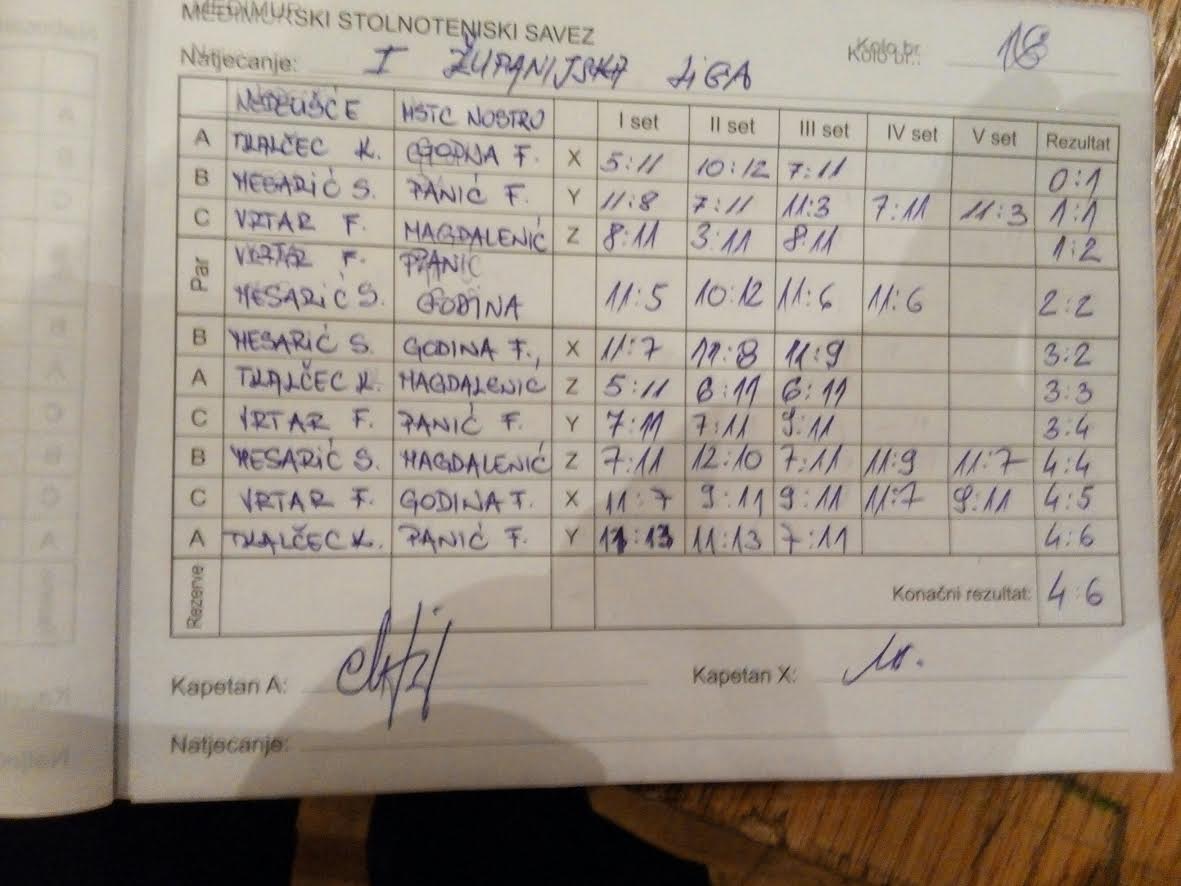 MEĐIMURSKI STOLNOTENISKI SAVEZ
Kolo br.: 16
Natjecanje: I ŽUPANIJSKA LIGA
NEDELIŠĆE MSTC NOSTRO I set II set III set IV set V set Rezultat
A TKALČEC K. GODINA F. X 5:11 10:12 7:11 0:1
B MESARIĆ S. PANIĆ F. Y 11:8 7:11 11:3 7:11 11:3 1:1
C VRTAR F. MAGDALENIĆ Z 8:11 3:11 8:11 1:2
Par VRTAR F. PANIĆ
MESARIĆ S. GODINA 11:5 10:12 11:6 11:6 2:2
B MESARIĆ S. GODINA F., X 11:7 11:8 11:9 3:2
A TKALČEC K. MAGDALENIĆ Z 5:11 6:11 6:11 3:3
C VRTAR F. PANIĆ F. Y 7:11 7:11 9:11 3:4
B MESARIĆ S. MAGDALENIĆ Z 7:11 12:10 7:11 11:9 11:7 4:4
C VRTAR F. GODINA F. X 11:7 9:11 9:11 11:7 9:11 4:5
A TKALČEC K. PANIĆ F. Y 11:13 11:13 7:11 4:6
Rezerve Konačni rezultat: 4:6
Kapetan A: Kapetan X:
Natjecanje: